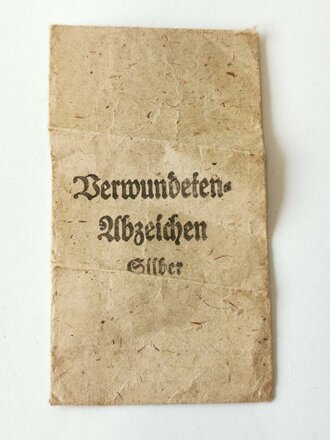 Verwundeten-
Abzeichen
Silber